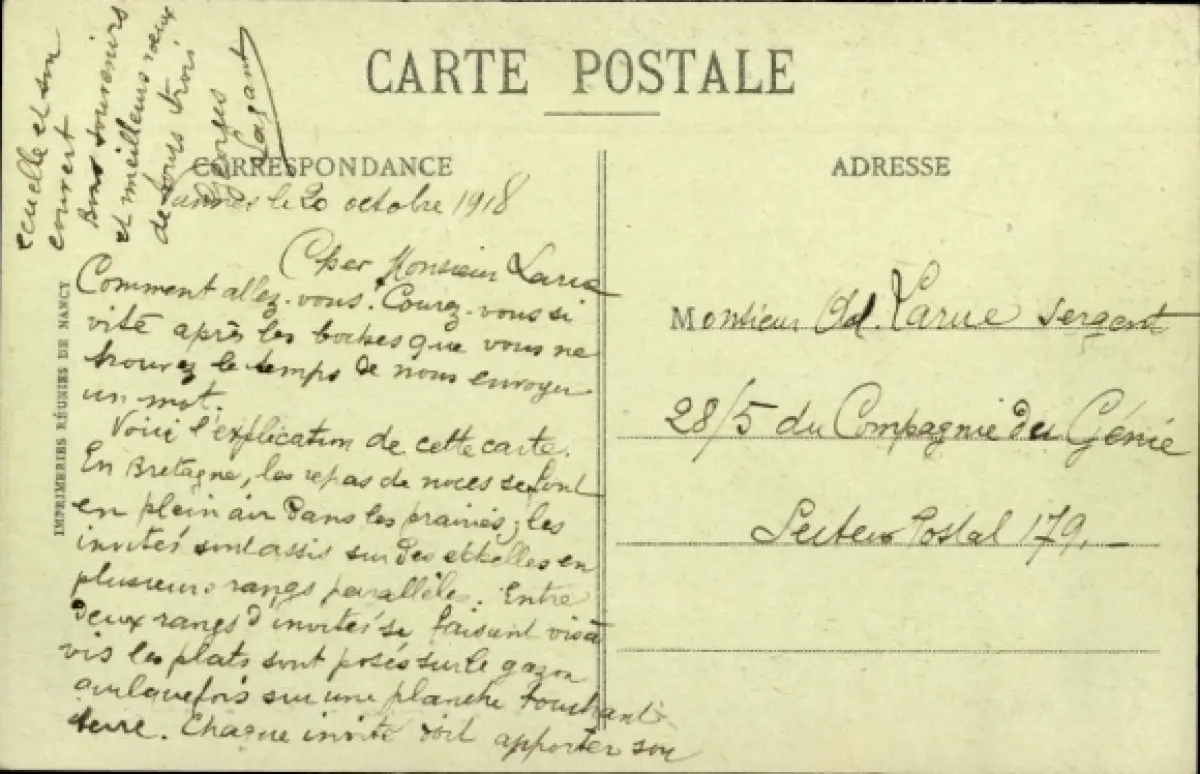 CARTE POSTALE
CORRESPONDANCE
ADRESSE
Vannes le 20 octobre 1918
Cher Monsieur Larue
Comment allez-vous. Courez-vous si
vite après les boches que vous ne
trouvez le temps de nous envoyer
un mot.
Voici l'explication de cette carte.
En Bretagne, les repas de noces se font
en plein air dans les prairies; les
invités sont assis sur des échelles en
plusieurs rangs parallèles. Entre
deux rangs d'invités se faisant vis à
vis les plats sont posés sur le gazon
sur une planche touchant
terre. Chaque invité doit apporter son
écuelle et son
couvert
Bons souvenirs
et meilleurs vœux
de tous trois
Georges
Monsieur Ad. Larue Sergent
28/5 du Compagnie du Génie
Secteur Postal 179.
IMPRIMERIES RÉUNIES DE NANCY